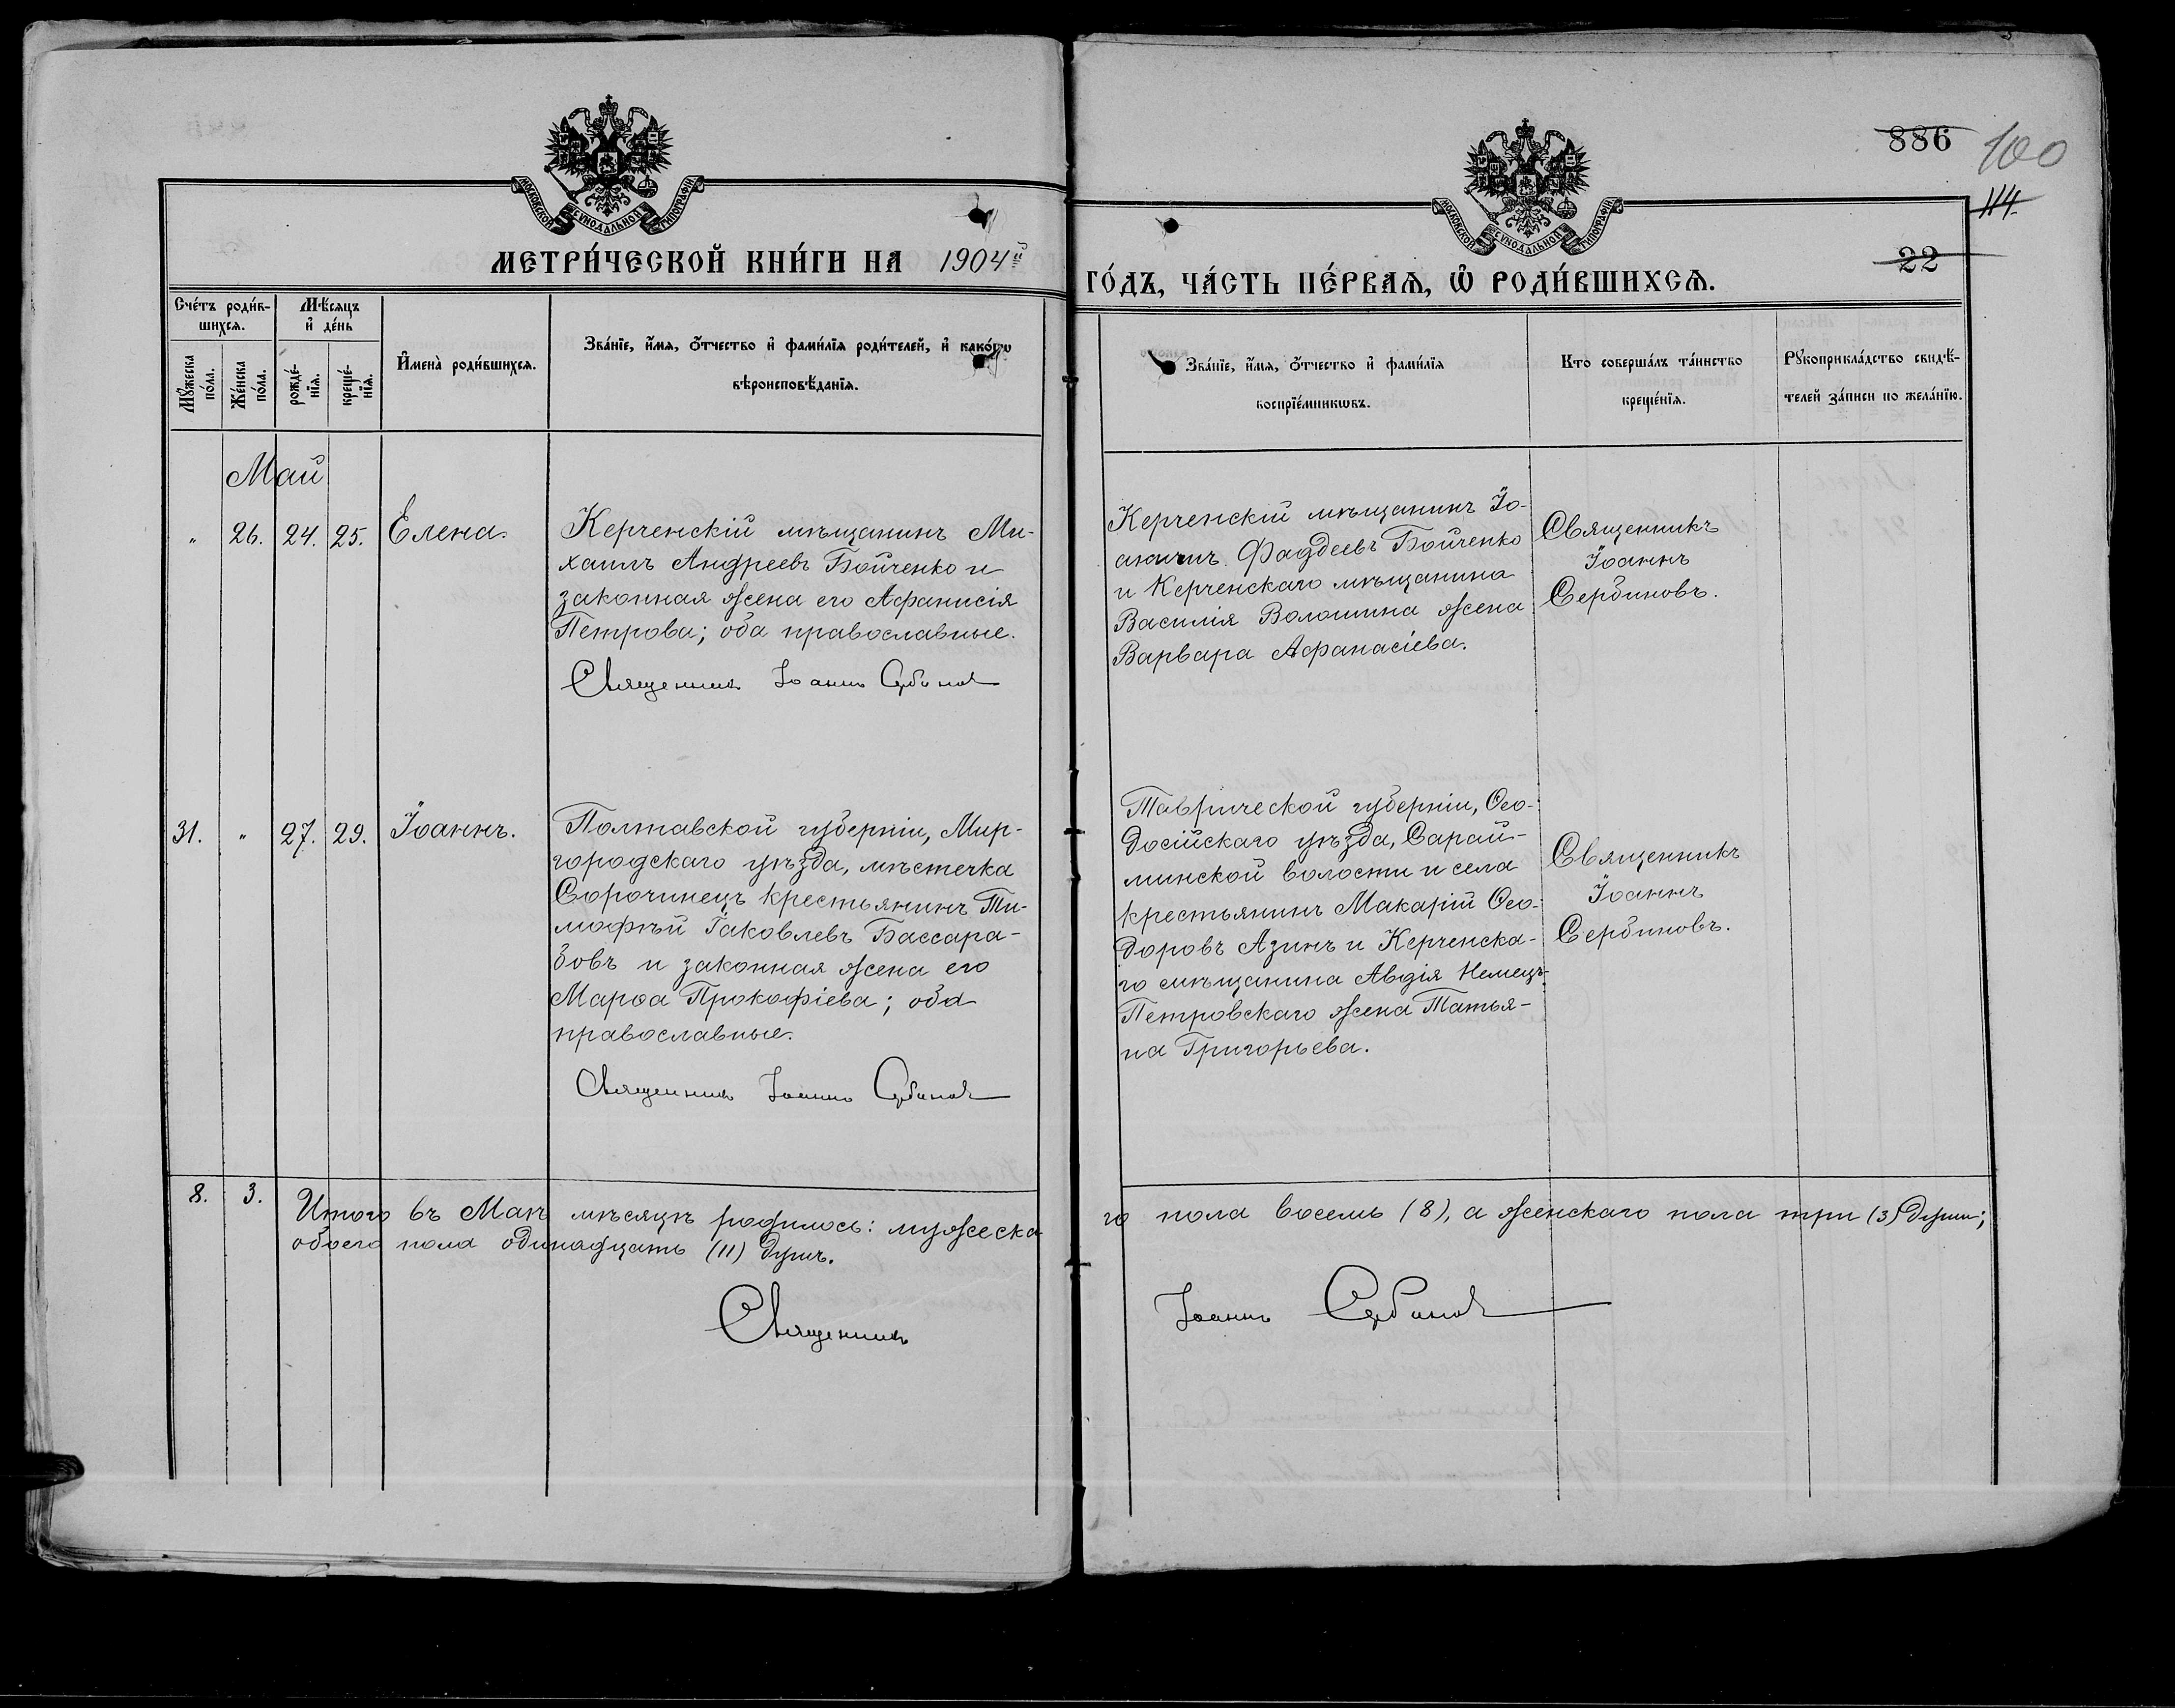 886
100
114.
22
МОСКОВСКОЙ СѴНОДАЛЬНОЙ ТИПОГРАФІИ
МОСКОВСКОЙ СѴНОДАЛЬНОЙ ТИПОГРАФІИ
МЕТРИ́ЧЕСКОЙ КНИ́ГИ НА 1904й
ГО́ДЪ, ЧА́СТЬ ПЕ́РВАѦ, Ѽ РОДИ́ВШИХСѦ.
Сче́тъ роди́в-
шихсѧ.
Мꙋ́жеска
по́ла.
Же́нска
по́ла.
Мѣ́сѧцъ
и҆ де́нь
рожде́-
нїѧ.
креще́-
нїѧ.
И҆мена̀ роди́вшихсѧ.
Зва́нїе, и҆́мѧ, ѻ҆́тчество и҆ фами́лїѧ роди́телей, и҆ како́гѡ
вѣроисповѣ́данїѧ.
Зва́нїе, и҆́мѧ, ѻ҆́тчество и҆ фами́лїѧ
воспрїе́мникѡвъ.
Кто соверша́лъ та́инство
креще́нїѧ.
Рꙋкоприкла́дство свидѣ́-
телей за́писи по жела́нїю.
Май
" 26. 24. 25. Елена.
Керченскій мѣщанинъ Ми-
хаилъ Андреевъ Бойченко и
законная жена его Афанисія
Петрова; оба православные.
Священникъ Іоаннъ Сербиновъ
Керченскій мѣщанинъ Іо-
аннъ Фаддеевъ Бойченко
и Керченскаго мѣщанина
Василія Волошина жена
Варвара Афанасіева.
Священникъ
Іоаннъ
Сербиновъ.
31. " 27. 29. Іоаннъ.
Полтавской губерніи, Мир-
городскаго уѣзда, мѣстечка
Сорочинецъ крестьянинъ Ти-
мофѣй Іаковлевъ Бассара-
бовъ и законная жена его
Марѳа Прокофіева; оба
православные.
Священникъ Іоаннъ Сербиновъ
Таврической губерніи, Ѳео-
досійскаго уѣзда, Сарай-
минской волости и села
крестьянинъ Макарій Ѳео-
доровъ Азинъ и Керченска-
го мѣщанина Авдія Немецъ-
Петровскаго жена Татья-
на Григорьева.
Священникъ
Іоаннъ
Сербиновъ.
8. 3. Итого въ Маѣ мѣсяцѣ родилось: мужеска
го пола восемь (8), а женскаго пола три (3) души;
обоего пола одинадцать (11) душъ.
Священникъ
Іоаннъ Сербиновъ